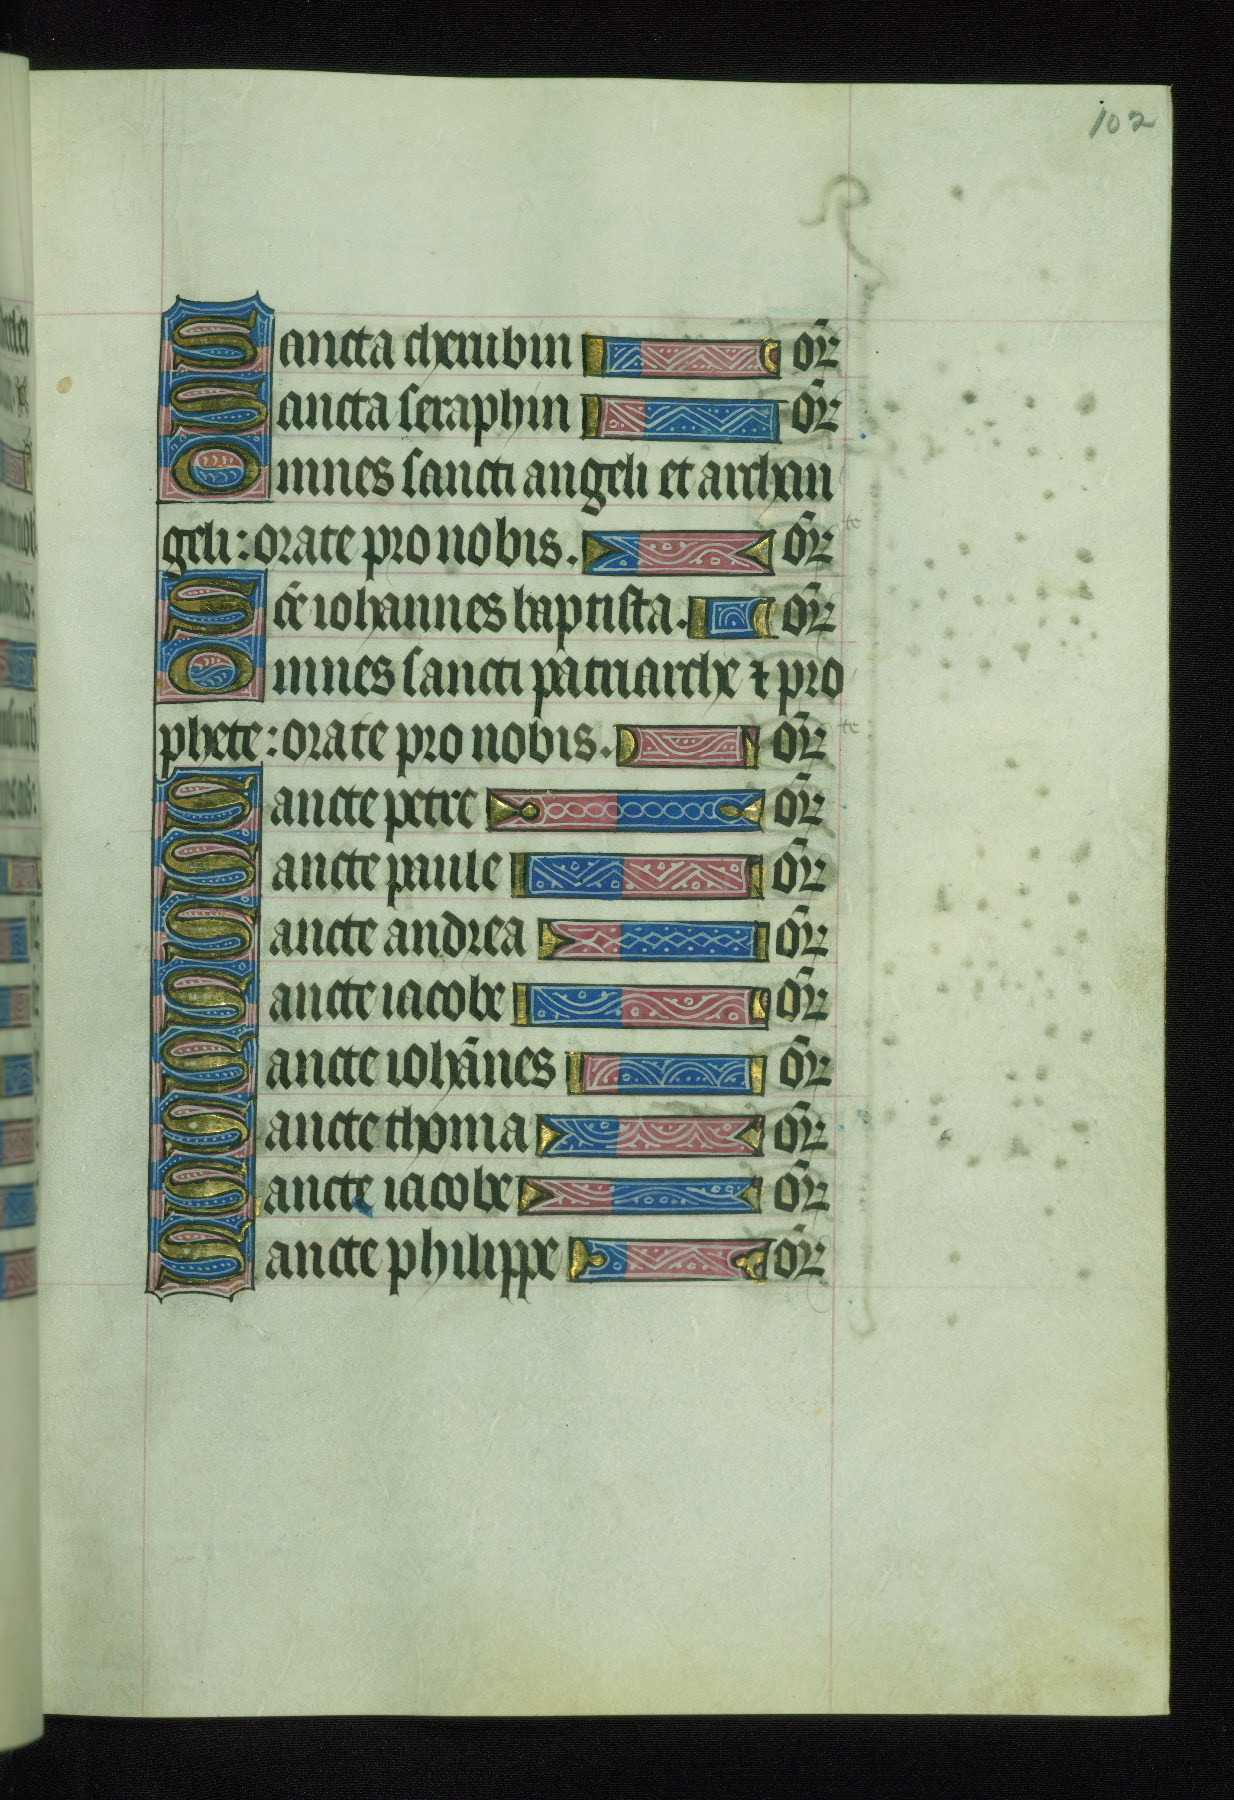 102
Sancta cherubin or
Sancta seraphin or
Omnes sancti angeli et archan
geli: orate pro nobis. or te
Sce iohannes baptista. or
Omnes sancti patriarche ⁊ pro
phete: orate pro nobis. or te
Sancte petre or
Sancte paule or
Sancte andrea or
Sancte iacobe or
Sancte iohānes or
Sancte thoma or
Sancte iacobe or
Sancte philippe or